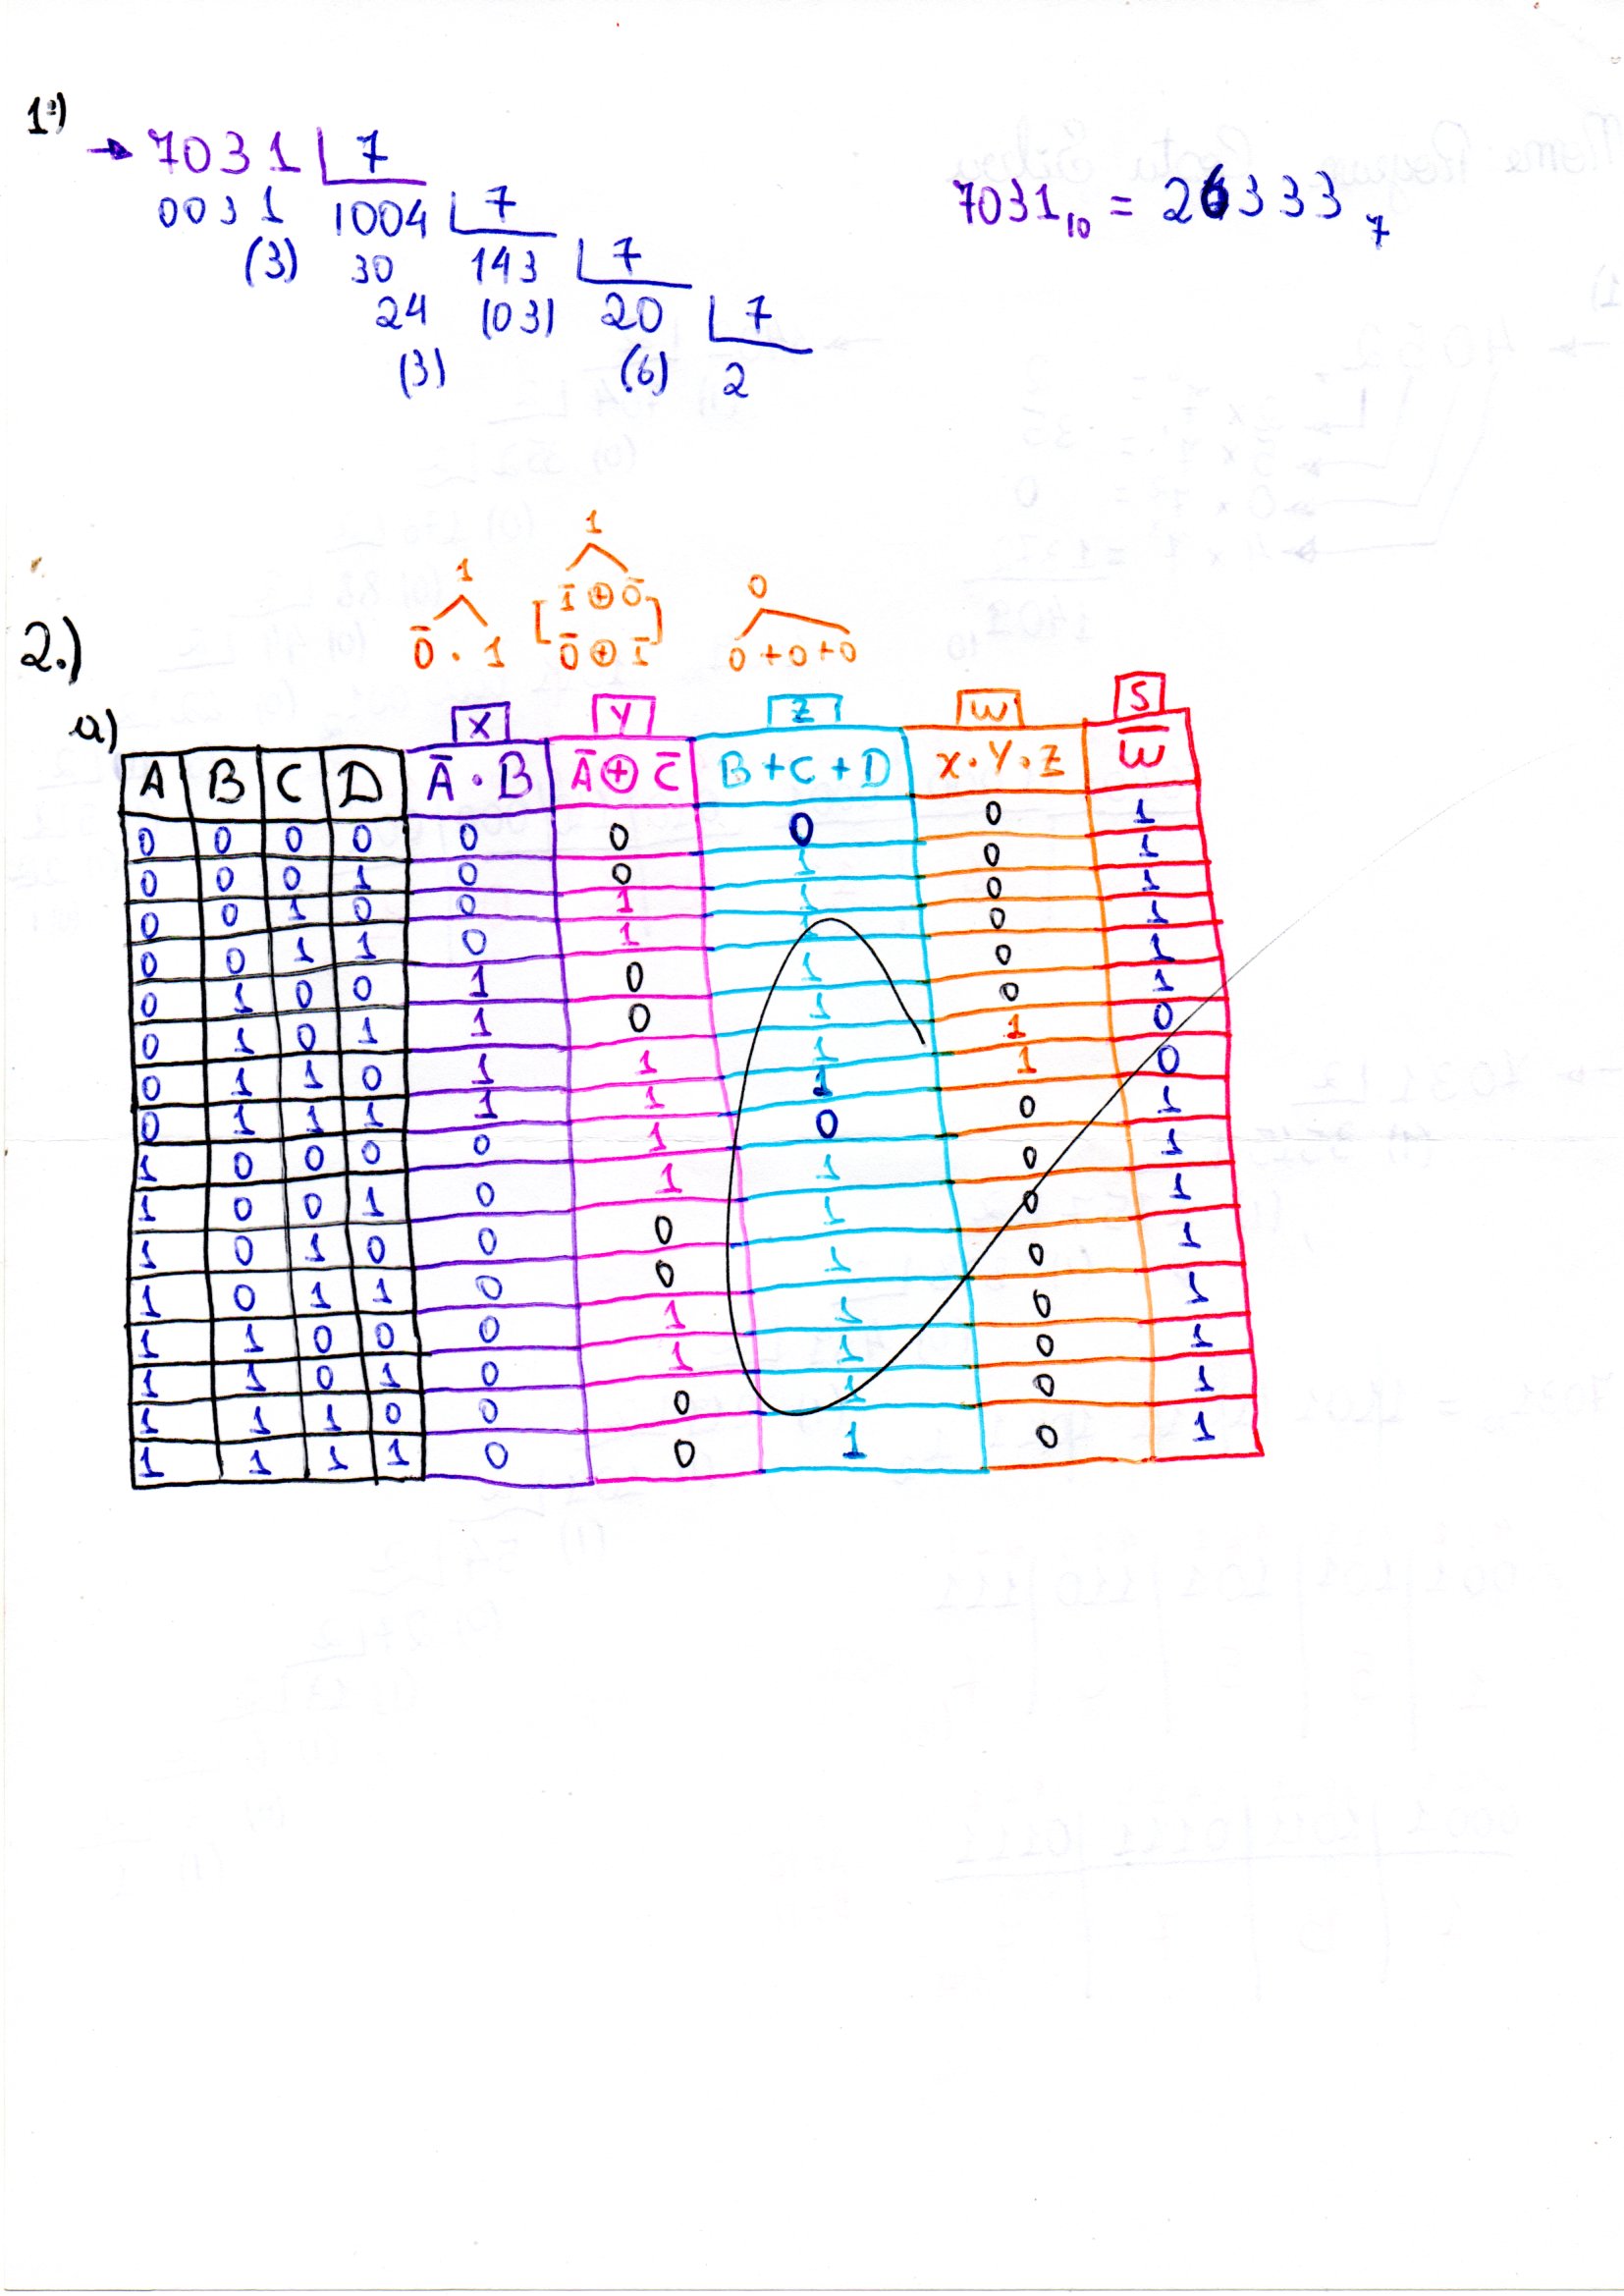 1º)
→ 7031 | 7
0031 1004 | 7
(3) 30 143 | 7
24 (03) 20 | 7
(3) (6) 2
7031₁₀ = 26333₇
2.)
1 1 0
0̄ . 1 [1̄ ⊕ 0̄ 0 + 0 + 0
0̄ ⊕ 1̄]
a)
X Y Z W S
A B C D Ā . B Ā ⊕ C̄ B + C + D X . Y . Z W̅
0 0 0 0 0 0 0 0 1
0 0 0 1 0 0 1 0 1
0 0 1 0 0 1 1 0 1
0 0 1 1 0 1 1 0 1
0 1 0 0 1 0 1 0 1
0 1 0 1 1 0 1 0 1
0 1 1 0 1 1 1 1 0
0 1 1 1 1 1 1 1 0
1 0 0 0 0 1 0 0 1
1 0 0 1 0 1 1 0 1
1 0 1 0 0 0 1 0 1
1 0 1 1 0 0 1 0 1
1 1 0 0 0 1 1 0 1
1 1 0 1 0 1 1 0 1
1 1 1 0 0 0 1 0 1
1 1 1 1 0 0 1 0 1